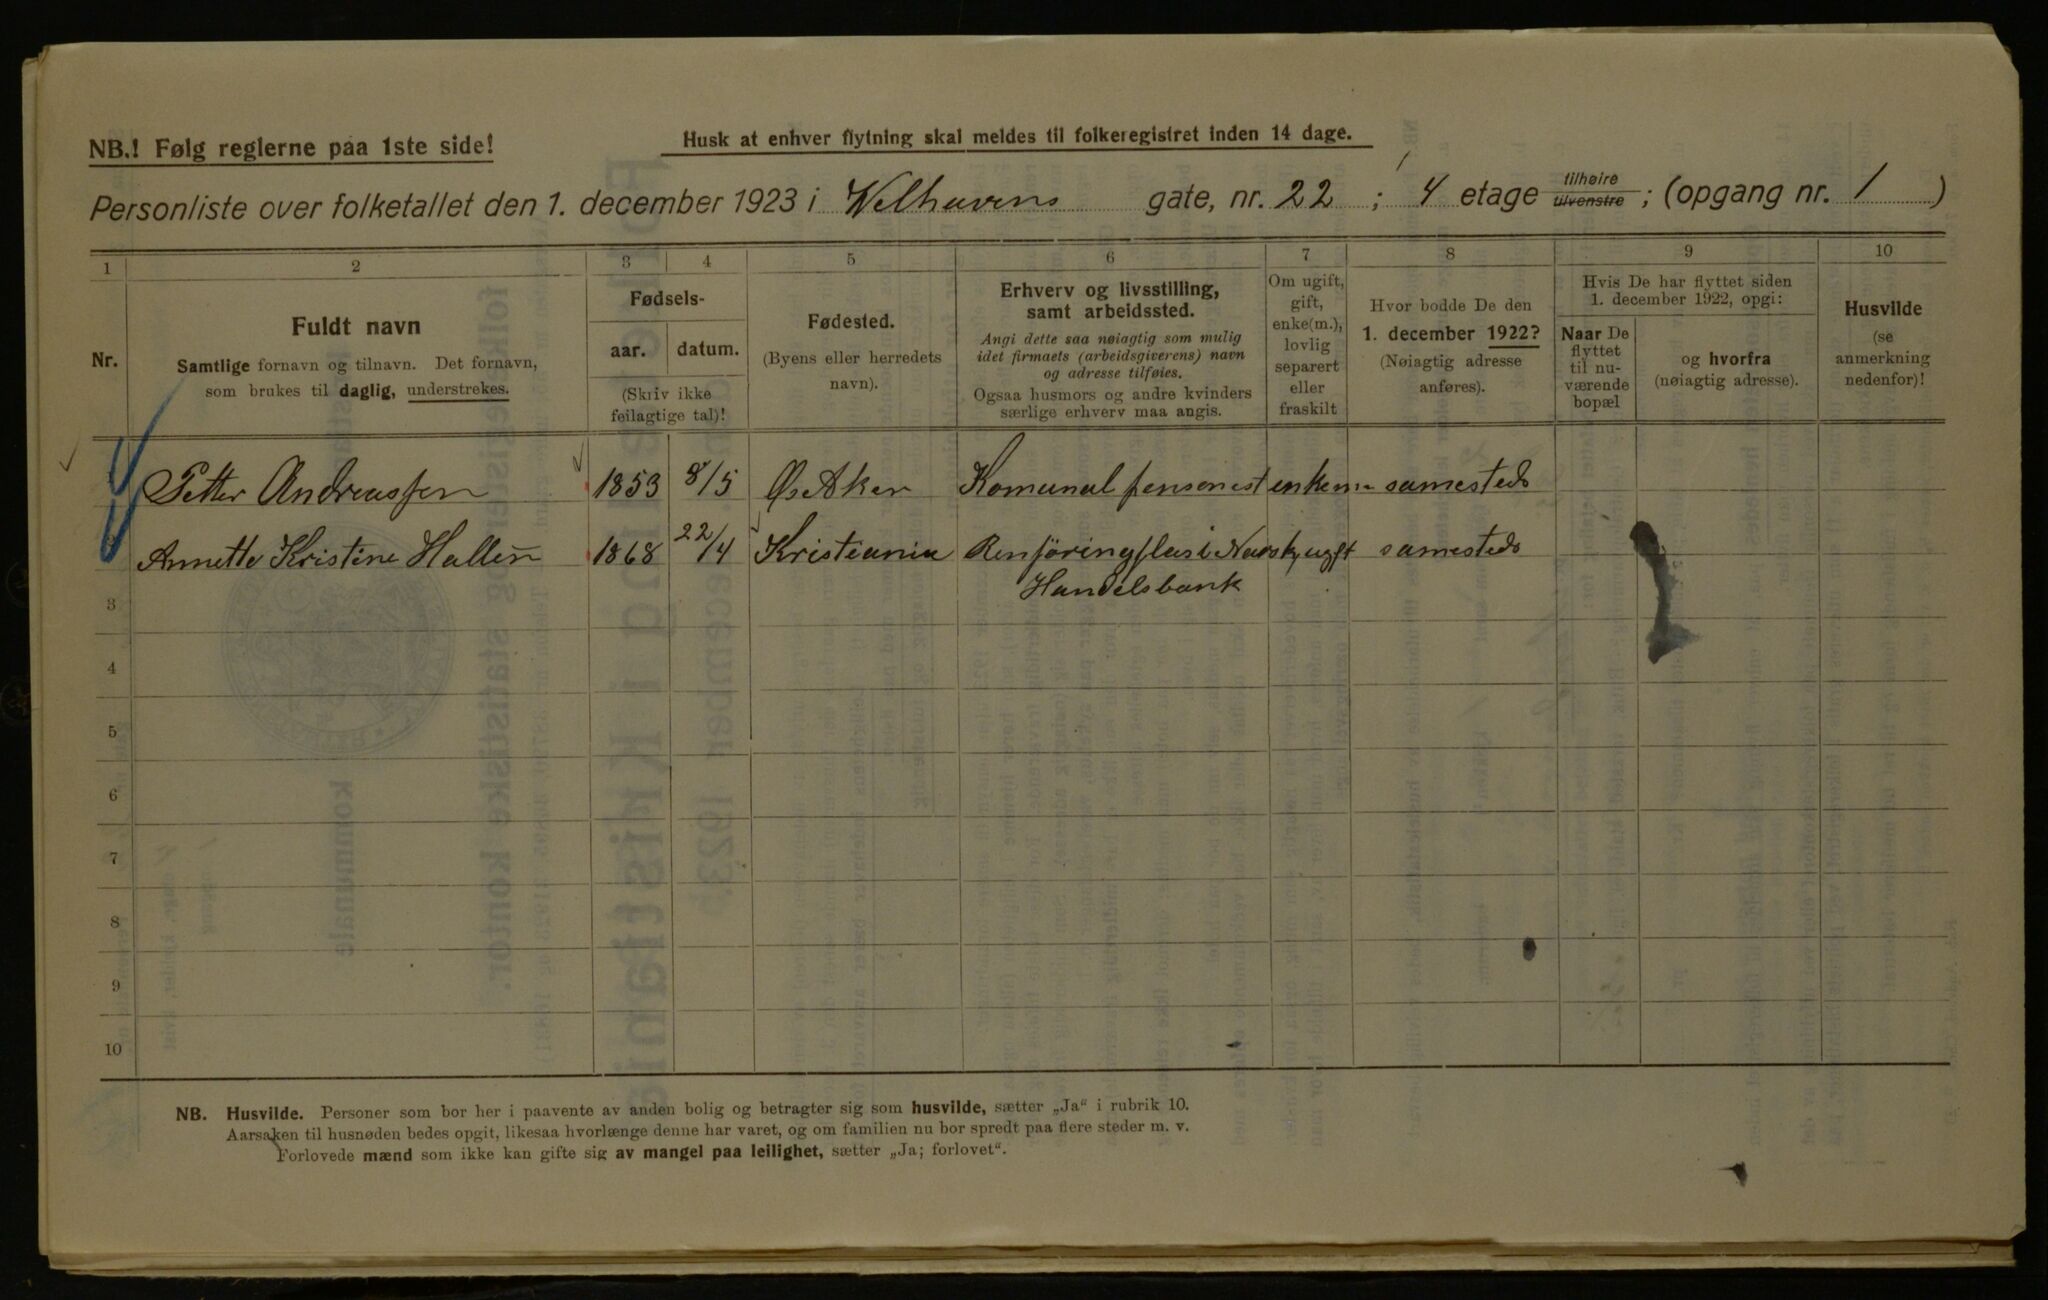 NB.! Følg reglerne paa 1ste side!
Husk at enhver flytning skal meldes til folkeregistret inden 14 dage.
Personliste over folketallet den 1. december 1923 i Welhavens gate, nr. 22 ; 4 etage tilhøire tilvenstre ; (opgang nr. 1 )
1 2 3 4 5 6 7 8 9 10
Nr.
Fuldt navn
Samtlige fornavn og tilnavn. Det fornavn,
som brukes til daglig, understrekes.
Fødsels-
aar. datum.
(Skriv ikke
feilagtige tal)!
Fødested.
(Byens eller herredets
navn).
Erhverv og livsstilling,
samt arbeidssted.
Angi dette saa nøiagtig som mulig
idet firmaets (arbeidsgiverens) navn
og adresse tilføies.
Ogsaa husmors og andre kvinders
særlige erhverv maa angis.
Om ugift,
gift,
enke(m.),
lovlig
separert
eller
fraskilt
Hvor bodde De den
1. december 1922?
(Nøiagtig adresse
anføres).
Hvis De har flyttet siden
1. december 1922, opgi:
Naar De
flyttet
til nu-
værende
bopæl
og hvorfra
(nøiagtig adresse).
Husvilde
(se
anmerkning
nedenfor)!
Petter Andreassen 1853 8/5 Øs Aker Komunal pensonest enkem samesteds
Annette Kristine Hallén 1868 22/4 Kristiania Renføring plas i Norsk ugft samesteds
Handelsbank
3
4
5
6
7
8
9
10
NB. Husvilde. Personer som bor her i paavente av anden bolig og betragter sig som husvilde, sætter „Ja" i rubrik 10.
Aarsaken til husnøden bedes opgit, likesaa hvorlænge denne har varet, og om familien nu bor spredt paa flere steder m. v.
Forlovede mænd som ikke kan gifte sig av mangel paa leilighet, sætter „Ja; forlovet".